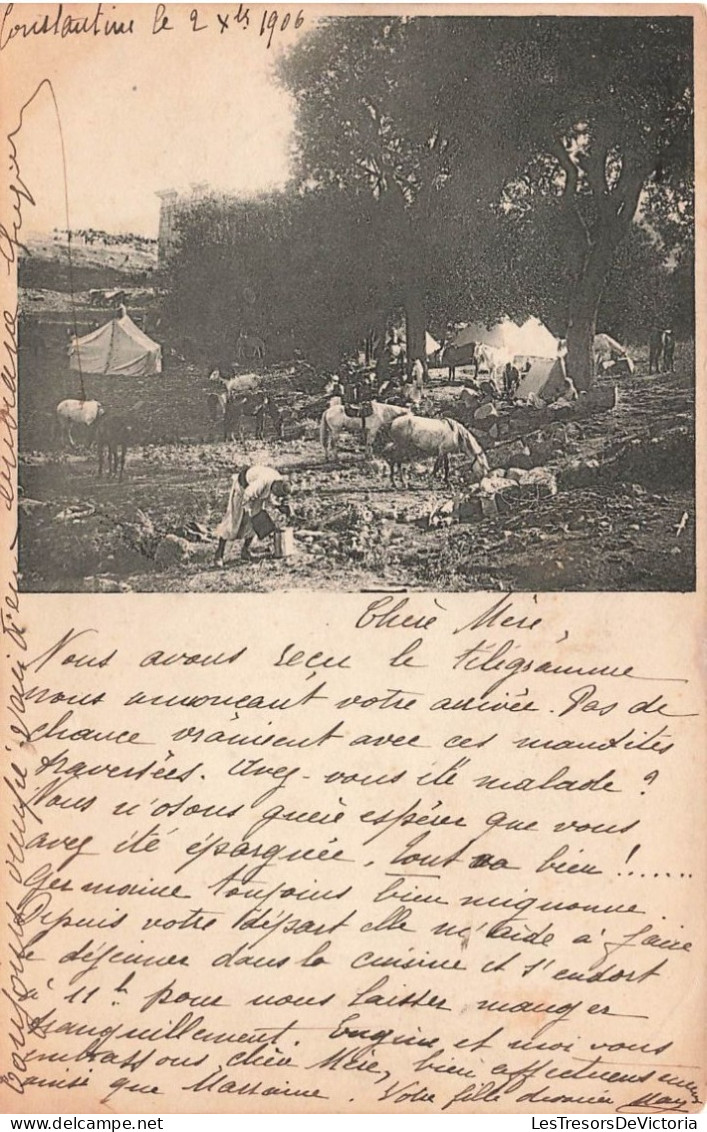 Constantine le 2 Xbre 1906
Chère Mère,
Nous avons reçu le télégramme
nous annonçant votre arrivée. Pas de
chance vraiment avec ces maudites
traversées. Avez-vous été malade ?
Nous n'osons guère espérer que vous
avez été épargnée, tout va bien !......
Germaine toujours bien mignonne.
Depuis votre départ elle m'aide à faire
le déjeuner dans la cuisine et s'endort
à 11h pour nous laisser manger
tranquillement. Eugène et moi vous
embrassons chère Mère, bien affectueusement
ainsi que Marraine. Votre fille
Toujours
www.LesTresorsDeVictoria.com